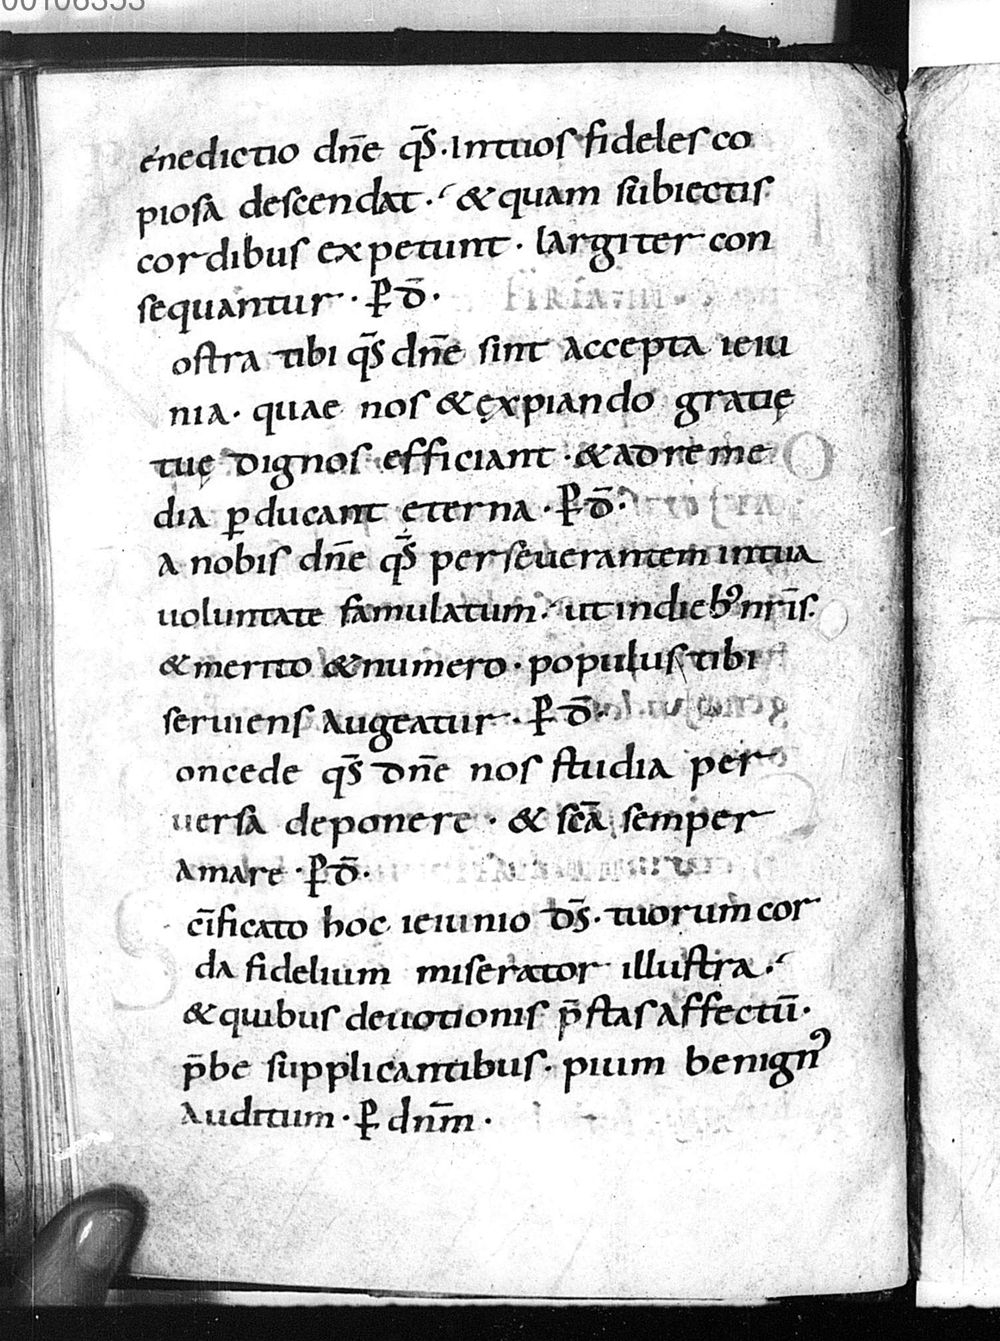 00106353
enedictio dn̄e qs̄. Intuos fideles co
piosa descendat. & quam subiectis
cordibus expetunt. largiter con
sequantur. P̱ D̄.
ostra tibi qs̄ dn̄e sint accepta ieiu
nia. quae nos & ęxpiando gratię
tuę dignos efficiant. & adreme
dia ꝑducant ęterna. P̱ D̄.
a nobis dn̄e qs̄ perseuerantem intua
uoluntate famulatum. ut indieb; nr̄is.
& merito & numero. populus tibi
seruiens augeatur. P̱ D̄.
oncede qs̄ dn̄e nos studia per
uersa deponere. & sc̄a semper
amare. P̱ D̄.
c̄ificato hoc ieiunio ds̄. tuorum cor
da fidelium miserator illustra.
& quibus deuotionis p̄stas affectū.
p̄be supplicantibus. pium benignꝰ
auditum. P̱ dn̄m.